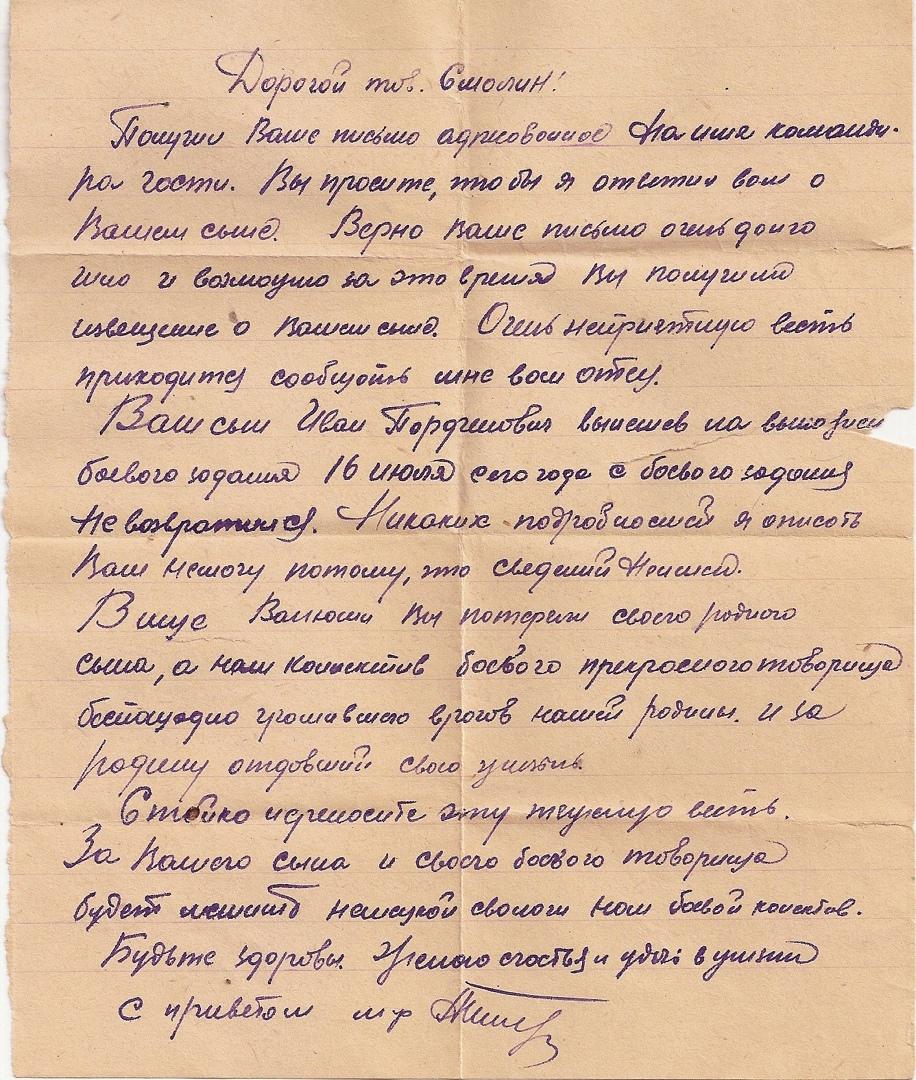 Дорогой тов. Смолин!
Получил Ваше письмо адресованное на имя команди-
ра части. Вы просите, что бы я ответил вам о
Вашем сыне. Верно Ваше письмо очень долго
шло и возможно за это время Вы получили
извещение о Вашем сыне. Очень неприятную весть
приходится сообщать мне вам отец.
Ваш сын Иван вылетев на
боевого задания 16 июля сего года с боевого задания
не возвратился. Никаких подробностей я описать
Вам немогу потому, что сведений неимею.
В лице Ванюши Вы потеряли своего родного
сына, а наш колектив боевого прекрасного товарища
беспощадно громившего врагов нашей родины. и за
родину отдавший свою жизнь.
Стойко переносите эту тяжелую весть.
За Вашего сына и своего боевого товарища
будет мстить немецкой сволочи наш боевой колектив.
Будьте здоровы. Желаю счастья и удачи в жизни
с приветом